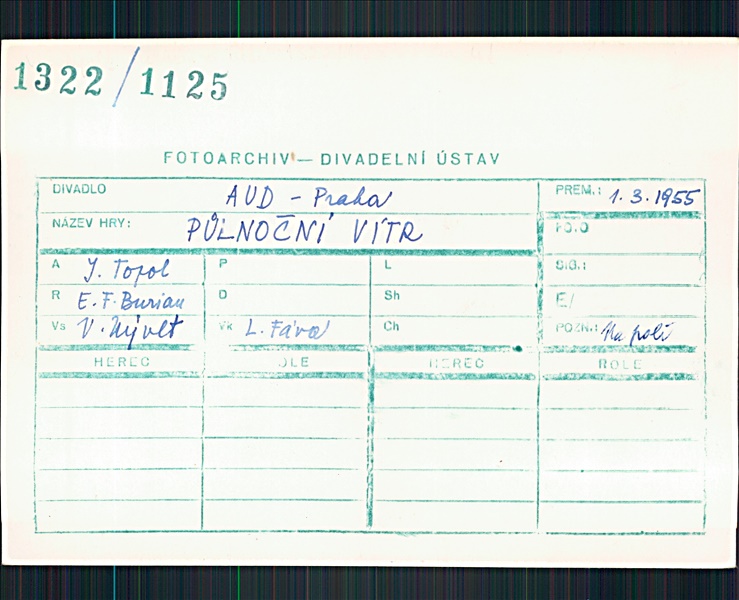 1322/1125
FOTOARCHIV — DIVADELNÍ ÚSTAV
DIVADLO AUD - Praha PREM.: 1.3.1955
NÁZEV HRY: PŮLNOČNÍ VÍTR FO.O
A J. Topol P L SIG.:
R E. F. Burian D Sh E/
Vs V. Nývlt Vk L. Fára Ch POZN.: Na poli
HEREC ROLE HEREC ROLE